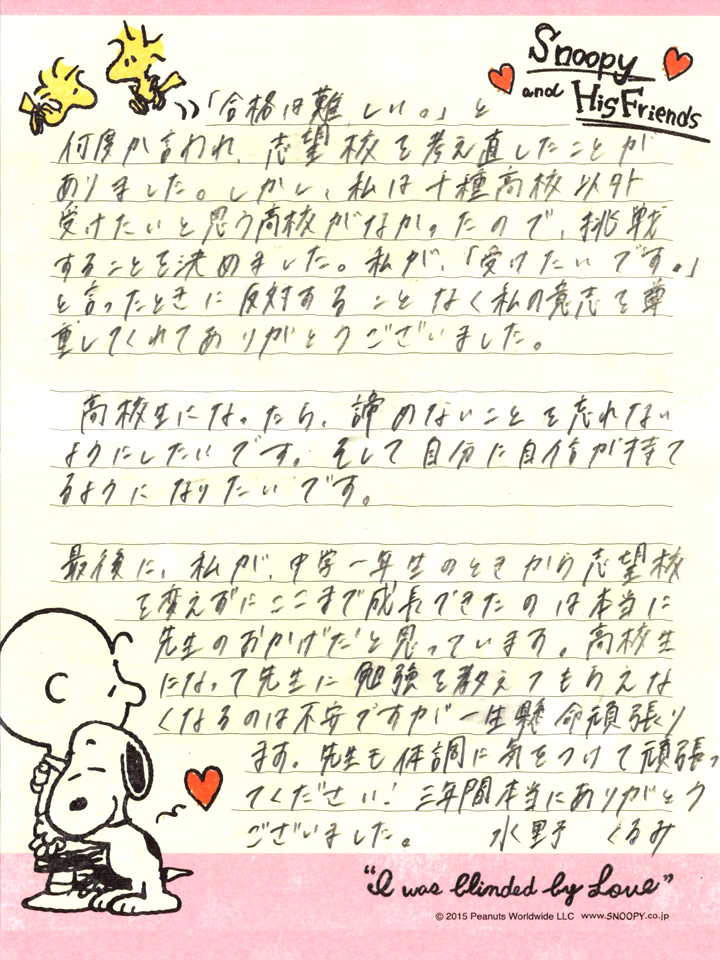 Snoopy
and His Friends
「合格は難しい。」と
何度か言われ、志望校を考え直したことが
ありました。しかし、私は十種高校以外
受けたいと思う高校がなかったので、挑戦
することを決めました。私が、「受けたいです。」
と言ったときに反対することなく私の意志を尊
重してくれてありがとうございました。
高校生になったら、諦めないことを忘れない
ようにしたいです。そして自分に自信が持て
るようになりたいです。
最後に、私が、中学一年生のときから志望校
を変えずにここまで成長できたのは本当に
先生のおかげだと思っています。高校生
になって先生に勉強を教えてもらえな
くなるのは不安ですが一生懸命頑張り
ます。先生も体調に気をつけて頑張っ
てください！三年間本当にありがとう
ございました。 水野 くるみ
"I was blinded by Love"
© 2015 Peanuts Worldwide LLC www.SNOOPY.co.jp